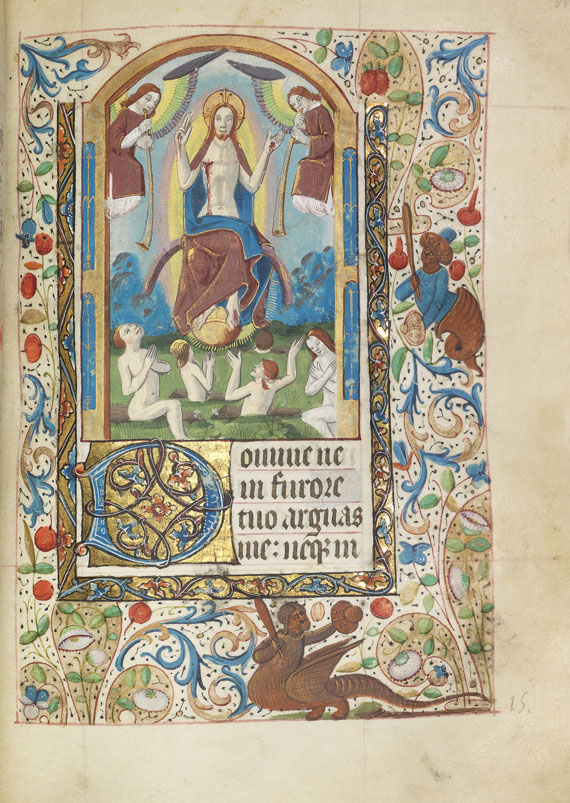 Domine ne
in furore
tuo arguas
me: neq3 in
15.